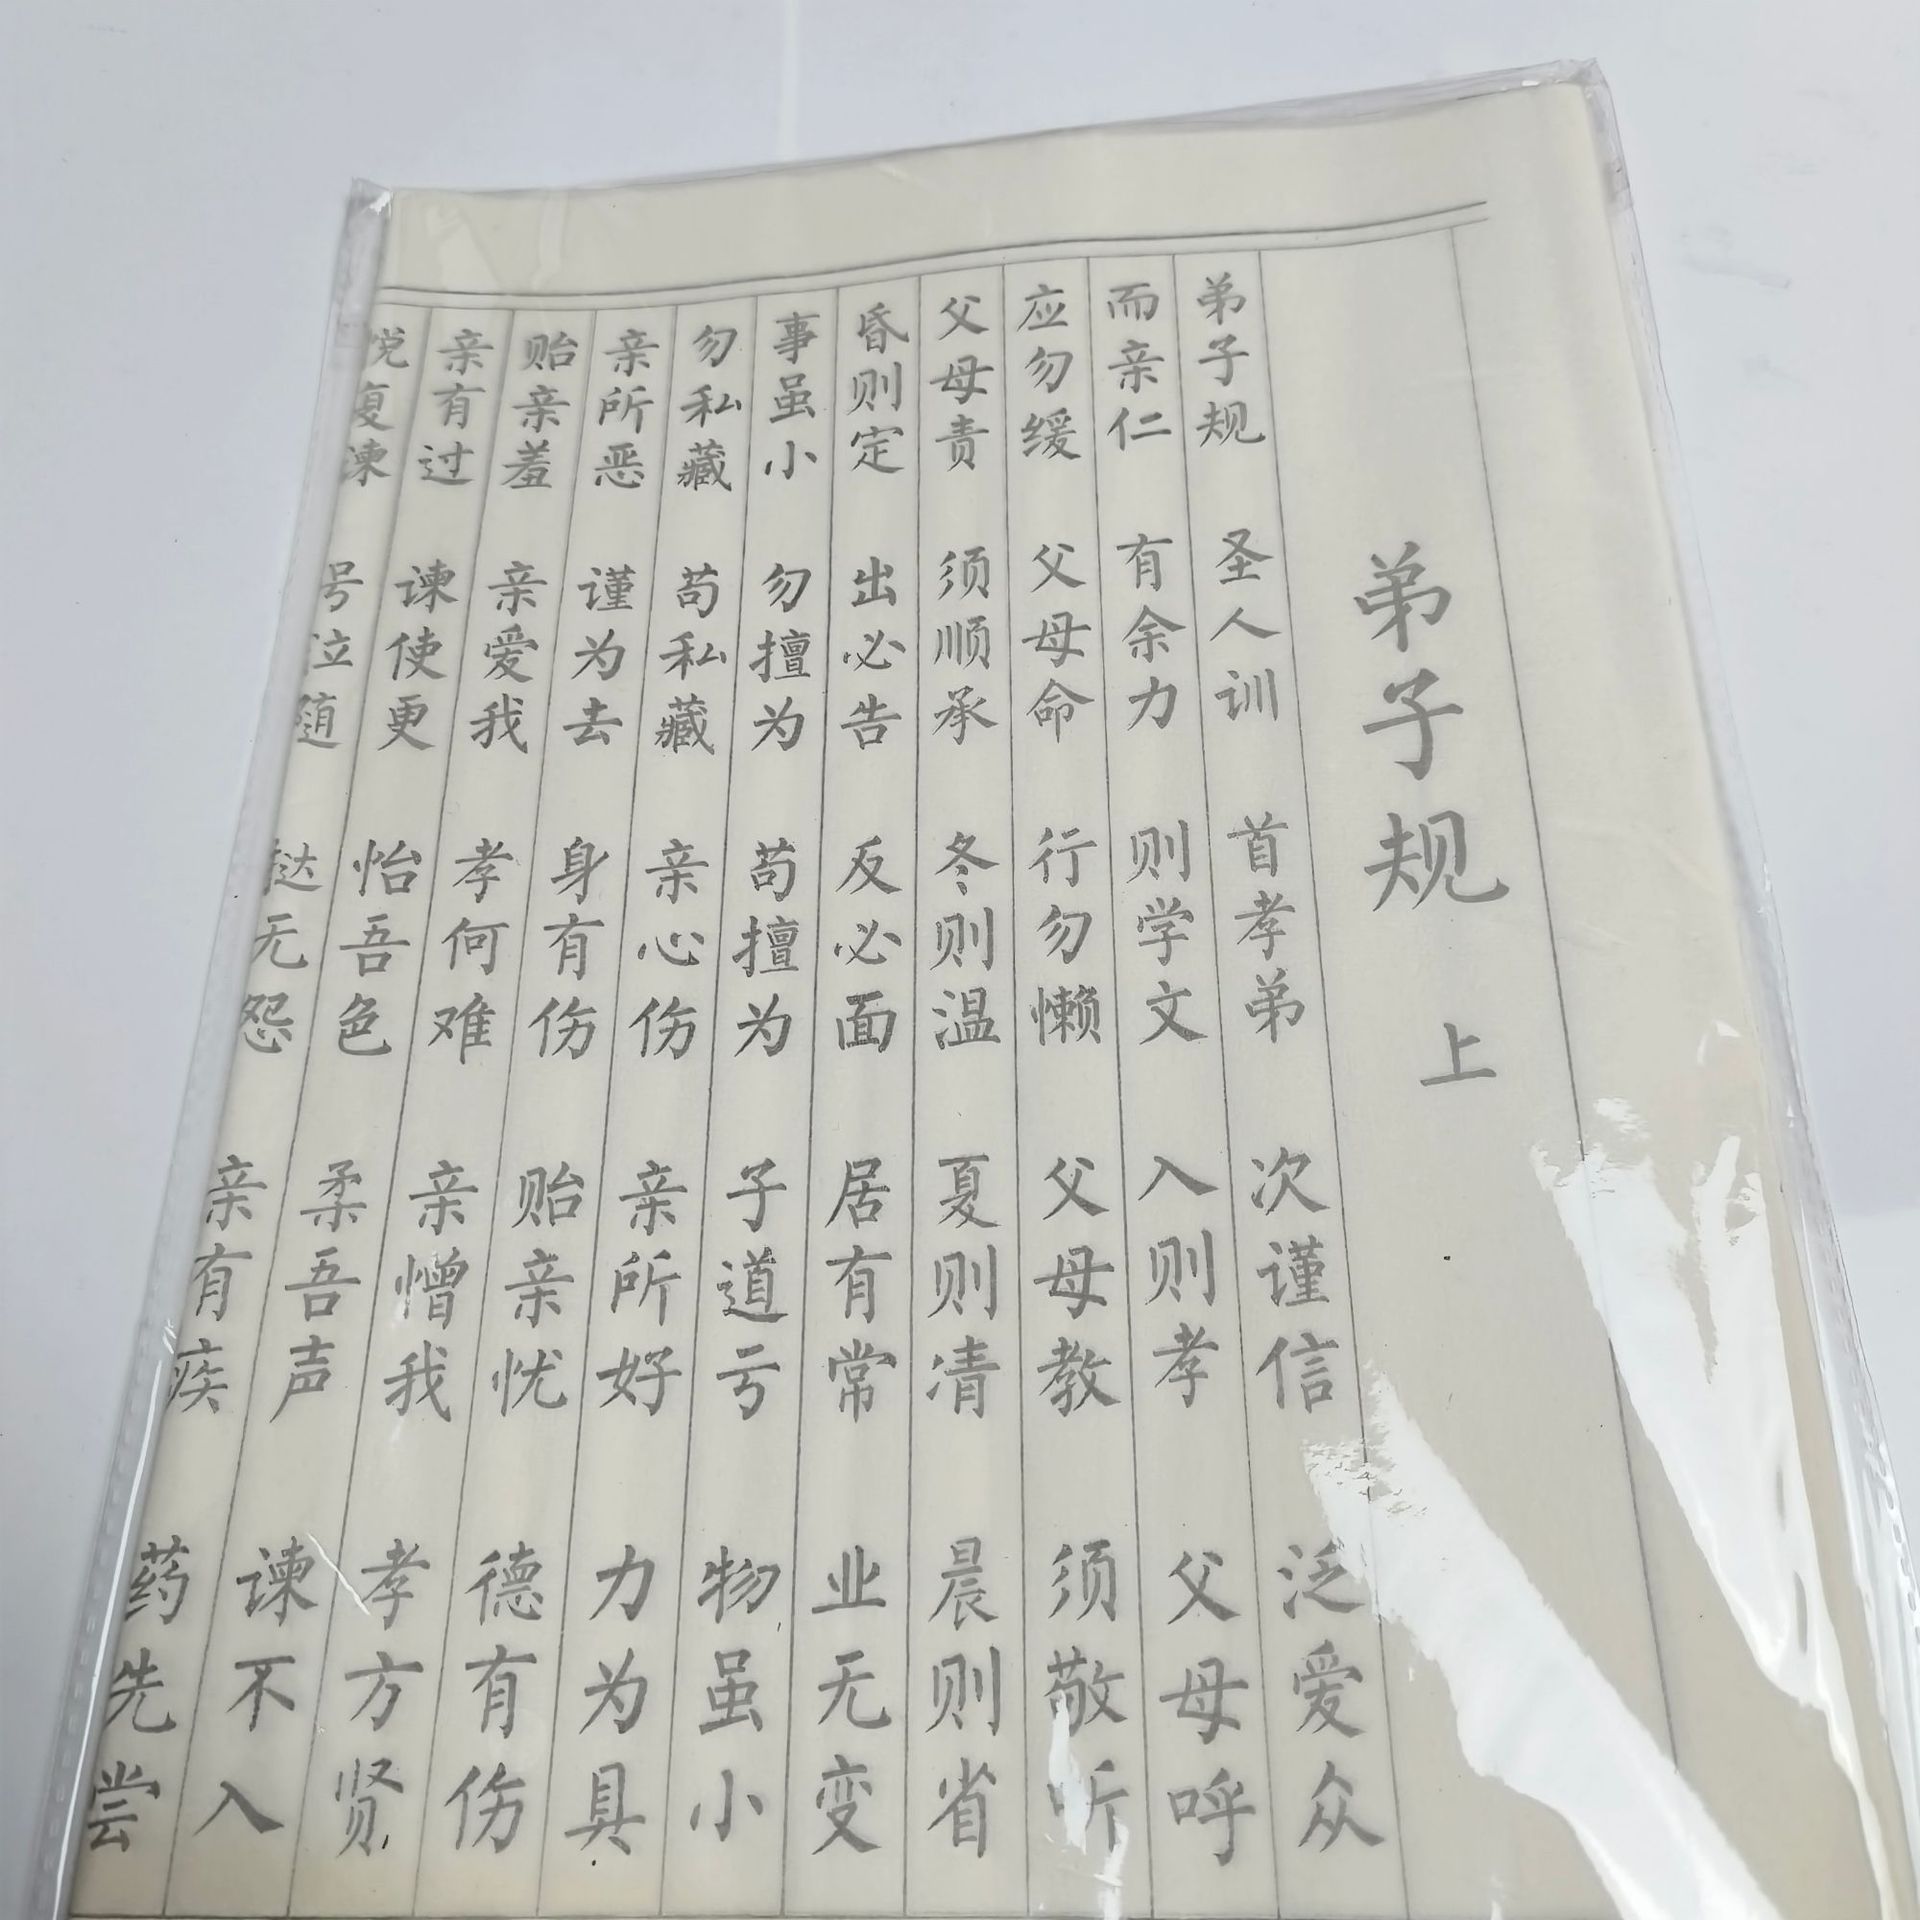 弟子规 上
弟子规 圣人训 首孝弟 次谨信 泛爱众
而亲仁 有余力 则学文 入则孝 父母呼
应勿缓 父母命 行勿懒 父母教 须敬听
父母责 须顺承 冬则温 夏则凊 晨则省
昏则定 出必告 反必面 居有常 业无变
事虽小 勿擅为 苟擅为 子道亏 物虽小
勿私藏 苟私藏 亲心伤 亲所好 力为具
亲所恶 谨为去 身有伤 贻亲忧 德有伤
贻亲羞 亲爱我 孝何难 亲憎我 孝方贤
亲有过 谏使更 怡吾色 柔吾声 谏不入
悦复谏 号泣随 挞无怨 亲有疾 药先尝